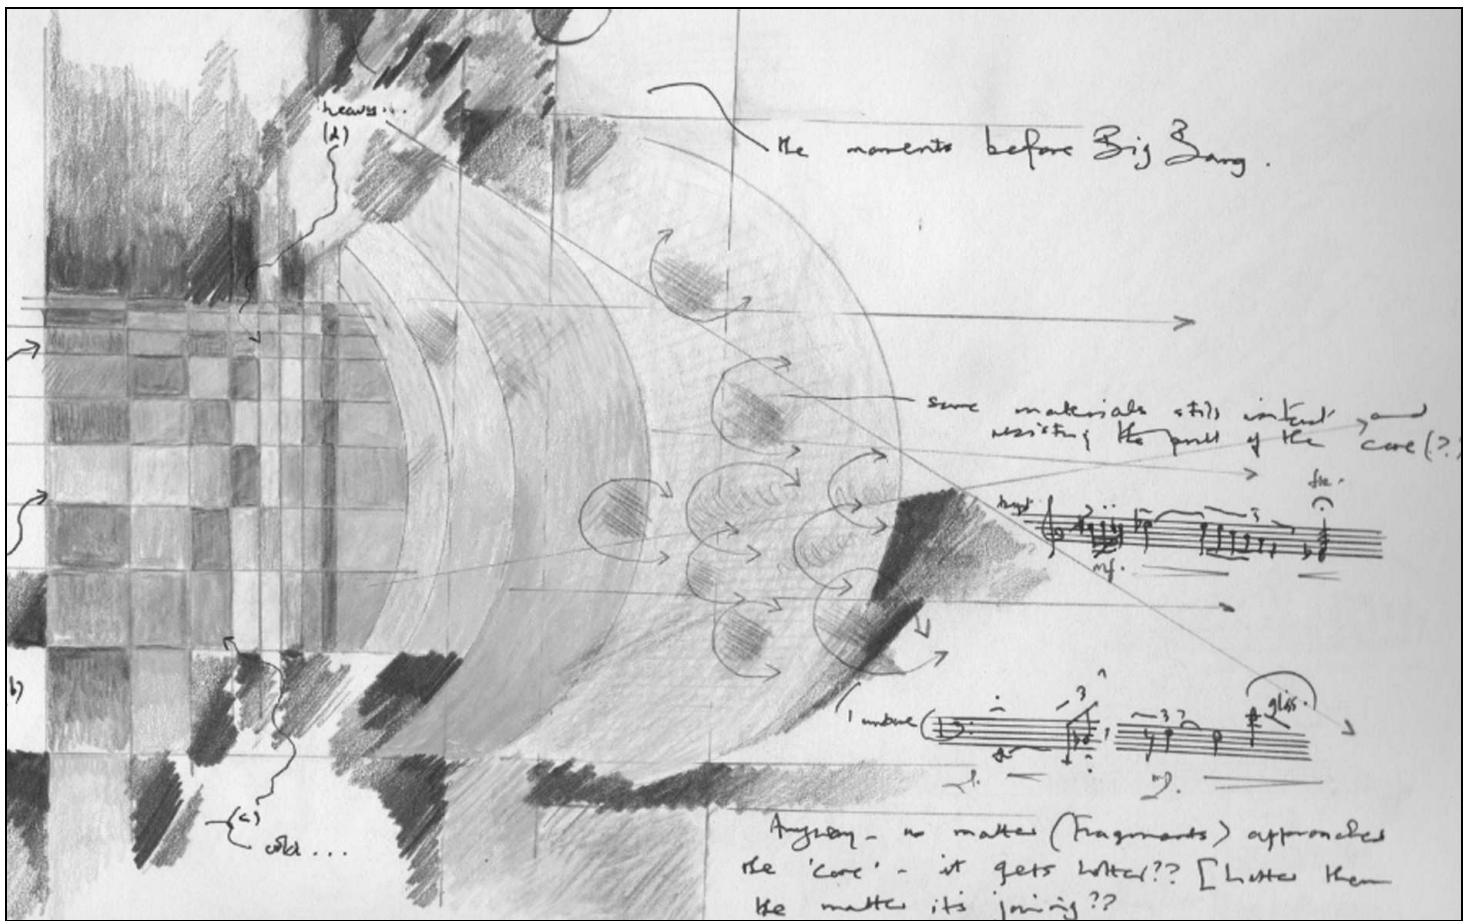 heavy...
(d)
the moments before Big Bang.
some materials still intact and
resisting the pull of the core (??
mf.
3
3
3
gliss.
mf.
b)
(c)
cold...
Anyway - as matter (fragments) approaches
the 'core' - it gets hotter?? [hotter than
the matter its joining??